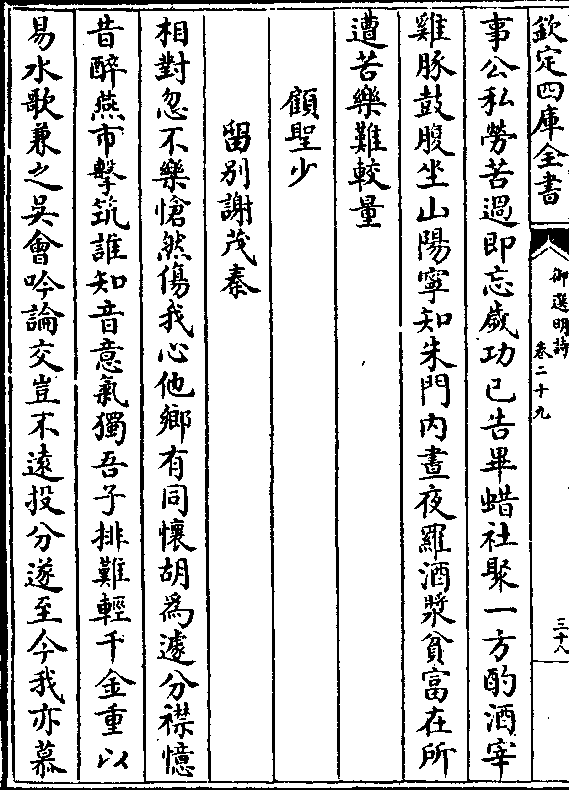 欽定四庫全書
御選明詩
卷二十九
三十八
事公私勞苦過即忘歲功已告畢蜡社聚一方酌酒宰
雞豚鼓腹坐山陽寧知朱門內晝夜羅酒漿貧富在所
遭苦樂難較量
顧聖少
留别謝茂秦
相對忽不樂愴然傷我心他鄉有同懷胡為遽分襟憶
昔醉燕市擊筑誰知音意氣獨吾子排難輕千金重以
易水歌兼之吳會吟論交豈不遠投分遂至今我亦慕